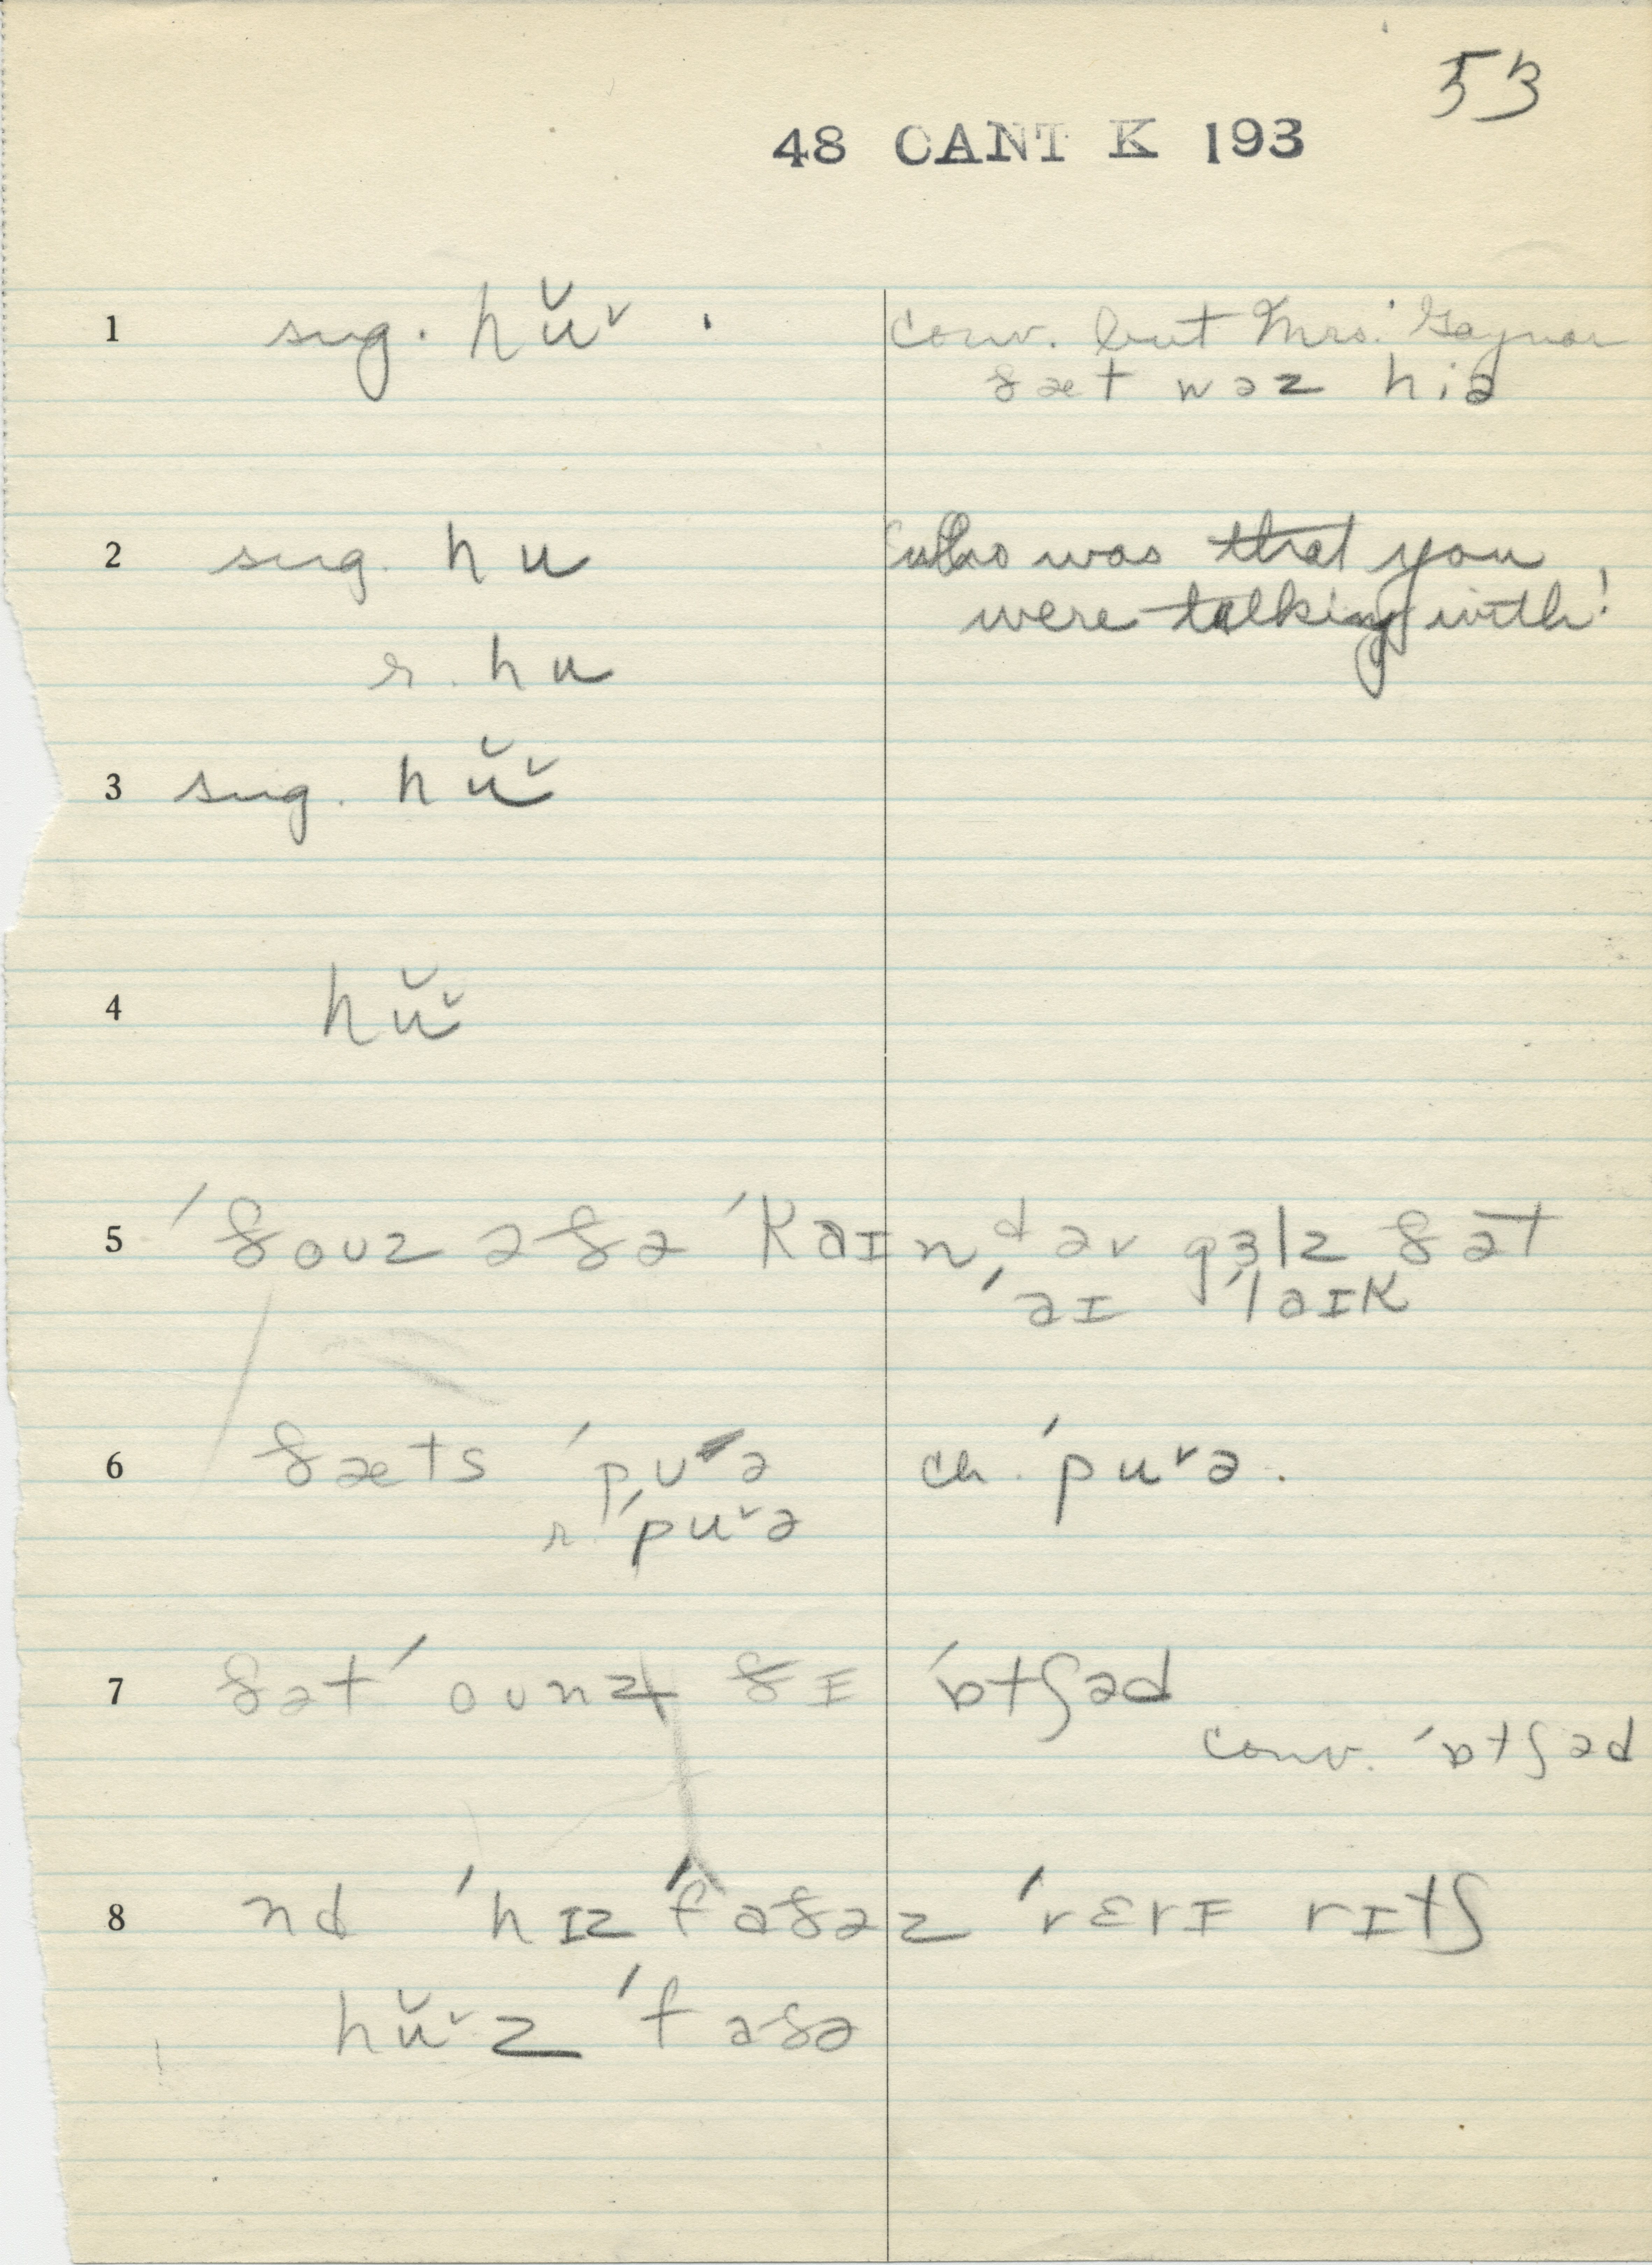 53
48 CANT K 193
1 sug. hŭᵛ . conv. but Mrs. Gaynor
ðæt wəz hiə
2 sug. hu who was that you
were talking with!
r. hu
3 sug. hŭᵛ
4 hŭᵛ
5 ˈðoʊz ə ðə ˈkaɪnᵈ əv gɜlz ðət
ˈaɪ ˈlaɪk
6 ðæts ˈpʊə ch. ˈpuᵛə.
r. ˈpuᵛə
7 ðət ˈoʊnz ðɪ ˈɒtʃəd
conv. ˈɒtʃəd
8 nd ˈhɪz ˈfaðəz ˈrɛrɪ rɪtʃ
hŭᵛz ˈfaðə